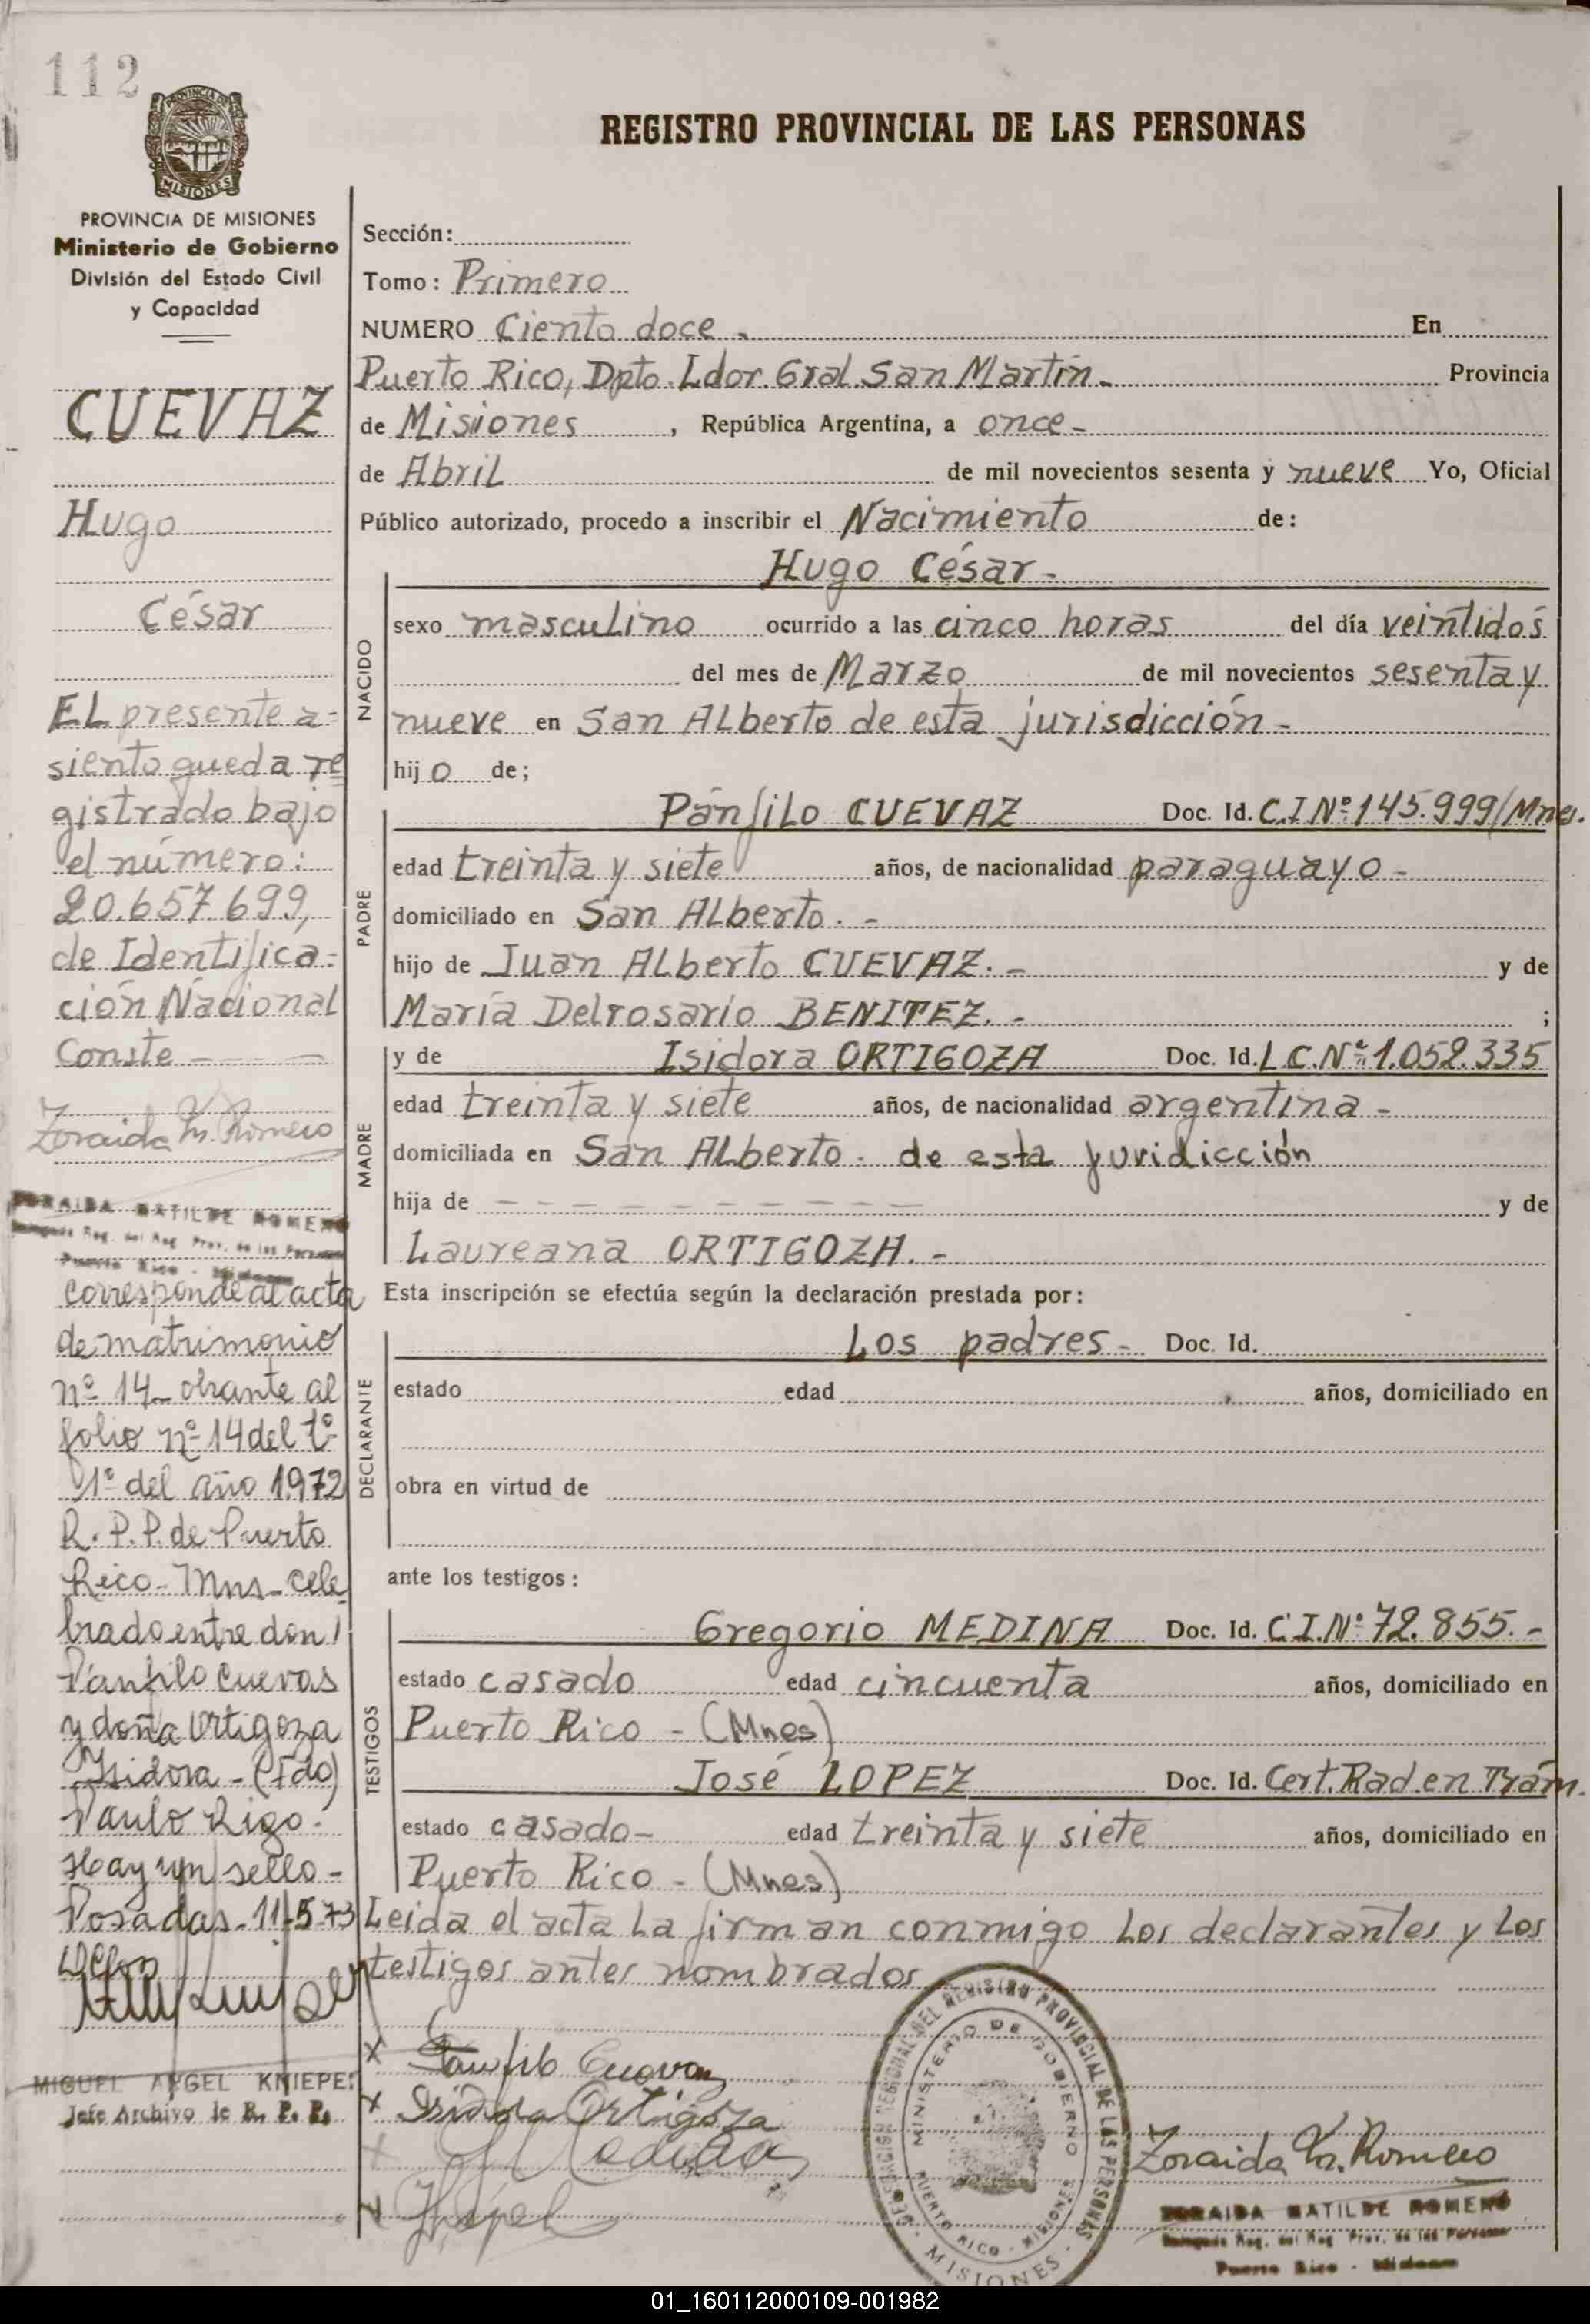 112
PROVINCIA DE MISIONES
REGISTRO PROVINCIAL DE LAS PERSONAS
PROVINCIA DE MISIONES
Ministerio de Gobierno
División del Estado Civil
y Capacidad
CUEVAZ
Hugo
César
EL presente a-
siento queda re
gistrado bajo
el número:
20.657.699,
de Identifica-
ción Nacional
Conste - - - -
Zoraida M. Romero
ZORAIDA MATILDE ROMERO
Delegada Reg. del Reg. Prov. de las Personas
Puerto Rico - Misiones
Corresponde al acta
de matrimonio
nº 14 obrante al
folio nº 14 del tº
1º del año 1972
R. P. P. de Puerto
Rico - Mns - cele
brado entre don
Pánfilo Cuevas
y doña Ortigoza
Isidora - (Fdo)
Paulo Rigo.
Hay un sello -
Posadas - 11-5-73
MIGUEL ANGEL KNIEPE
Jefe Archivo de R. P. P.
Sección:
Tomo: Primero
NUMERO Ciento doce . En
Puerto Rico, Dpto. Ldor. Gral. San Martín - Provincia
de Misiones , República Argentina, a once -
de Abril de mil novecientos sesenta y nueve Yo, Oficial
Público autorizado, procedo a inscribir el Nacimiento de:
Hugo César -
NACIDO
sexo masculino ocurrido a las cinco horas del día veintidós
del mes de Marzo de mil novecientos sesenta y
nueve en San ALberto de esta jurisdicción -
hijo de;
PADRE
Pánfilo CUEVAZ Doc. Id. C.I Nº 145.999/Mnes.
edad treinta y siete años, de nacionalidad paraguayo -
domiciliado en San ALberto. -
hijo de Juan ALberto CUEVAZ. - y de
María Delrosario BENITEZ. - ;
MADRE
y de Isidora ORTIGOZA Doc. Id. L.C.Nº 1.052.335
edad treinta y siete años, de nacionalidad argentina -
domiciliada en San ALberto. de esta juridicción
hija de - - - - - - - - - - y de
Laureana ORTIGOZA. -
Esta inscripción se efectúa según la declaración prestada por:
DECLARANTE
Los padres - Doc. Id.
estado edad años, domiciliado en
obra en virtud de
ante los testigos:
TESTIGOS
Gregorio MEDINA Doc. Id. C.I.Nº 72.855. -
estado casado edad cincuenta años, domiciliado en
Puerto Rico - (Mnes)
José LOPEZ Doc. Id. Cert. Rad en Trám.
estado casado - edad treinta y siete años, domiciliado en
Puerto Rico - (Mnes)
Leida el acta la firman conmigo los declarantes y los
testigos antes nombrados
X Panfilo Cuevaz
X Isidora Ortigoza
DELEGACION REGIONAL DEL REGISTRO PROVINCIAL DE LAS PERSONAS
MINISTERIO DE GOBIERNO
PUERTO RICO - MISIONES
- MISIONES -
Zoraida M. Romero
ZORAIDA MATILDE ROMERO
Delegada Reg. del Reg. Prov. de las Personas
Puerto Rico - Misiones
01_160112000109-001982